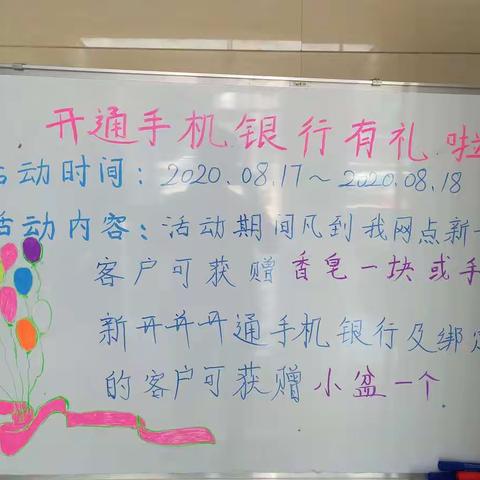 开通手机银行有礼啦
活动时间：2020.08.17～2020.08.18
活动内容：活动期间凡到我网点新
客户可获赠香皂一块或手
新开并开通手机银行及绑定
的客户可获赠小盆一个